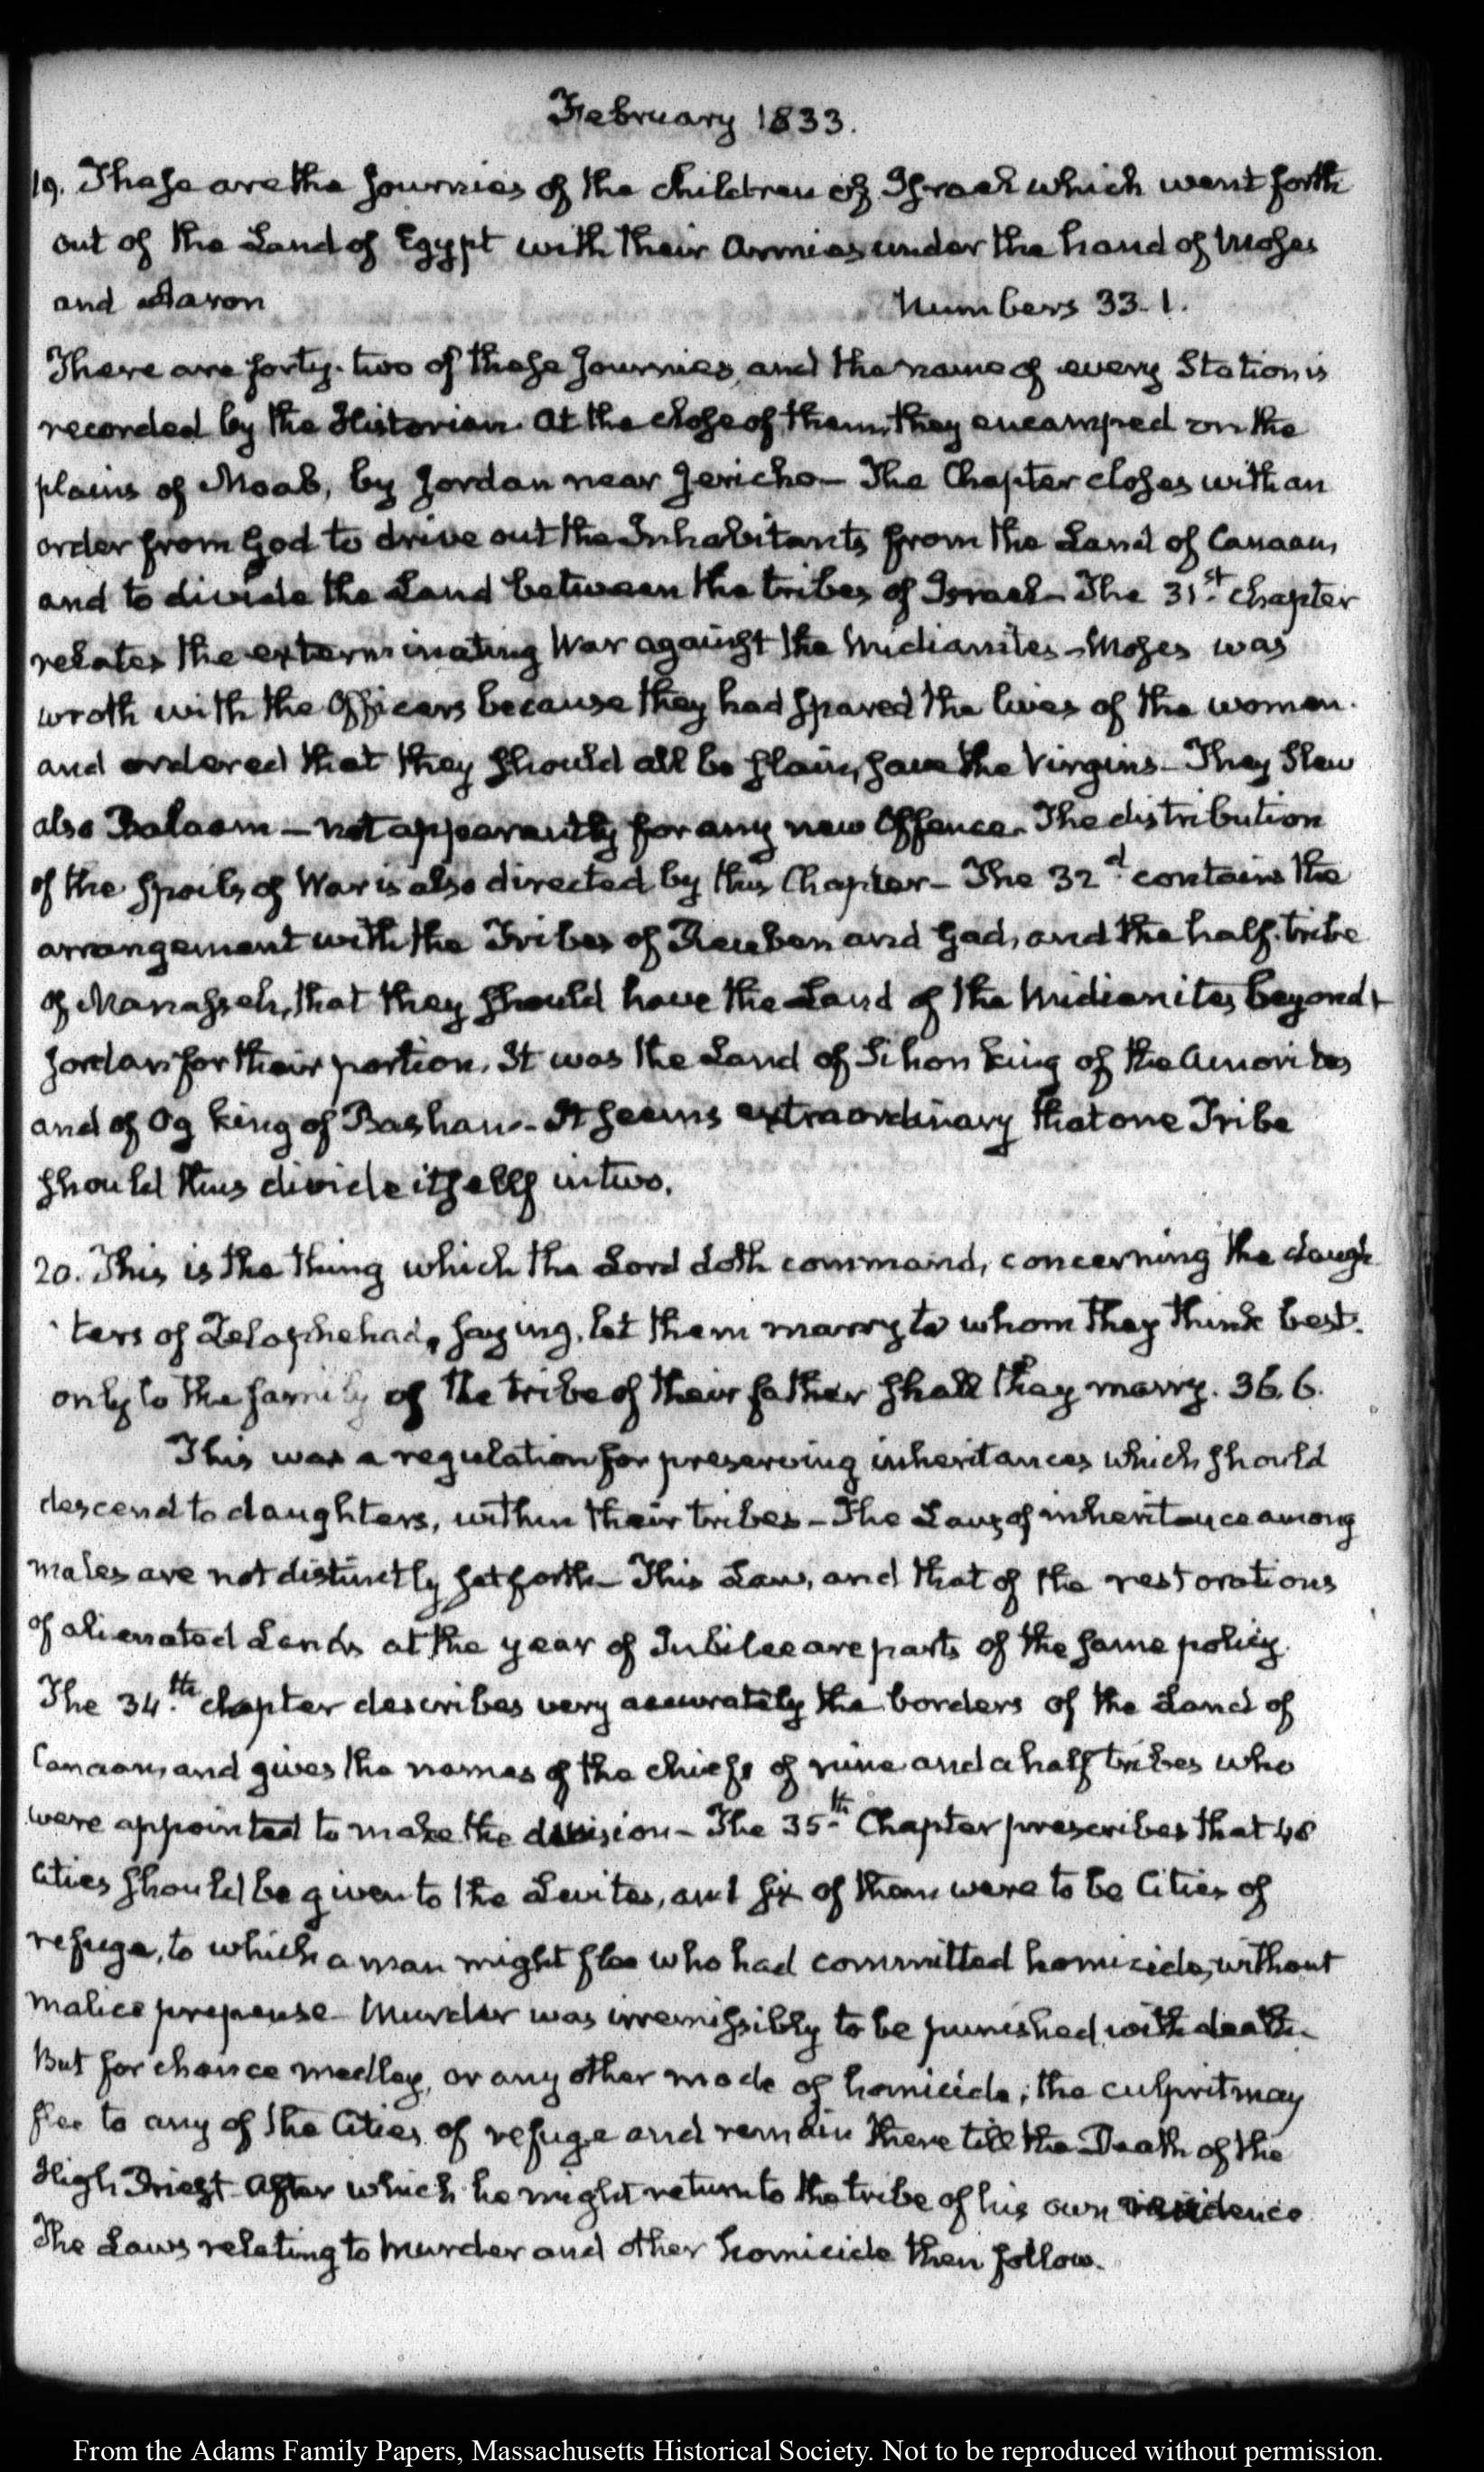 February 1833.
19. These are the journies of the children of Israel which went forth
out of the Land of Egypt with their Armies under the hand of Moses
and Aaron Numbers 33. 1.
There are forty-two of these journies, and the name of every Station is
recorded by the Historian. At the close of them, they encamped on the
plains of Moab, by Jordan near Jericho— The Chapter closes with an
order from God to drive out the Inhabitants from the Land of Canaan,
and to divide the Land between the tribes of Israel— The 31st. chapter
relates the exterminating War against the Midianites— Moses was
wroth with the Officers because they had spared the lives of the women.
and ordered that they should all be slain, save the Virgins— They slew
also Balaam— not apparently for any new Offence. The distribution
of the spoils of War is also directed by this Chapter— The 32d. contains the
arrangement with the Tribes of Reuben and Gad, and the half-tribe
of Manasseh, that they should have the Land of the Midianites beyond
Jordan for their portion. It was the Land of Sihon king of the Amorites
and of Og king of Bashan— It seems extraordinary that one Tribe
should thus divide itself in two.
20. This is the thing which the Lord doth command, concerning the daugh
ters of Zelophehad, saying, let them marry to whom they think best.
only to the family of the tribe of their father shall they marry. 36. 6.
This was a regulation for preserving inheritances which should
descend to daughters, within their tribes— The Laws of inheritance among
males are not distinctly set forth— This Law, and that of the restorations
of alienated Lands at the year of Jubilee are parts of the same policy.
The 34.th chapter describes very accurately the borders of the Land of
Canaan, and gives the names of the chiefs of nine and a half tribes who
were appointed to make the division— The 35th. Chapter prescribes that 48
Cities should be given to the Levites, and six of them were to be Cities of
refuge, to which a man might flee who had committed homicide, without
malice prepense— Murder was irremissibly to be punished with death—
But for chance medley, or any other mode of homicide, the culprit may
flee to any of the Cities of refuge and remain there till the Death of the
High Priest— After which he might return to the tribe of his own residence
The Laws relating to Murder and other homicide then follow.
From the Adams Family Papers, Massachusetts Historical Society. Not to be reproduced without permission.